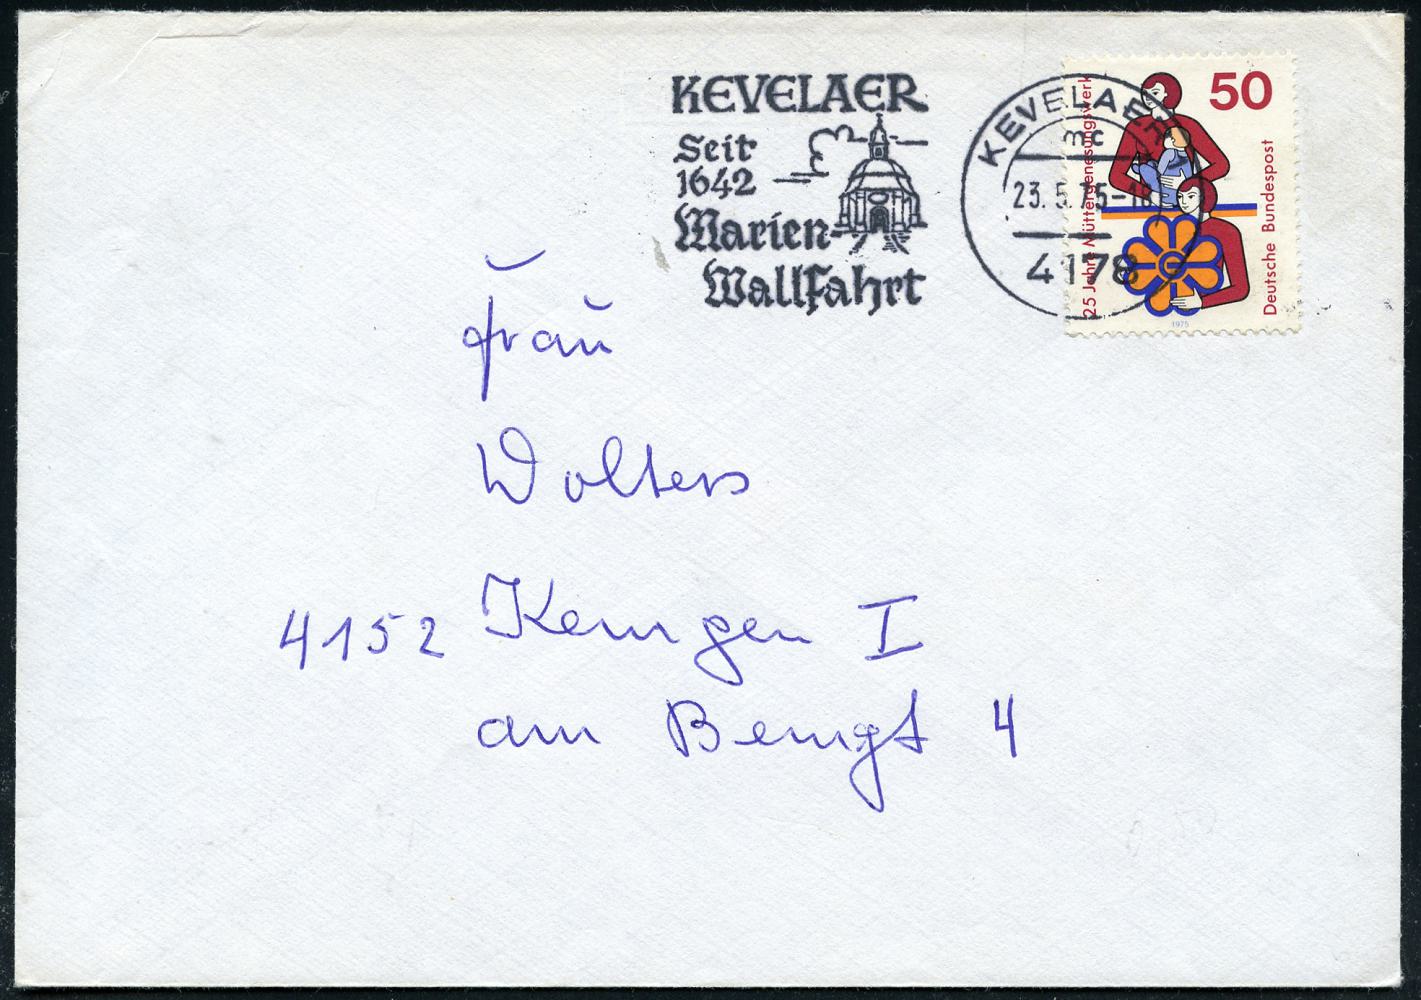 KEVELAER
Seit
1642
Marien-
Wallfahrt
KEVELAER
mc
23.5.75-18
4178
50
25 Jahre Müttergenesungswerk
Deutsche Bundespost
1975
Frau
Wolters
4152 Kempen I
am 4